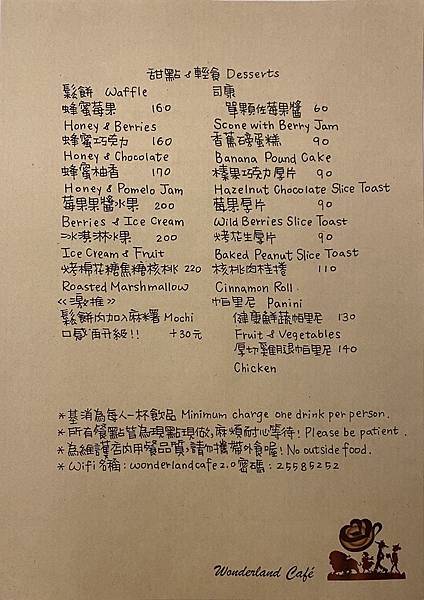 甜點 & 輕食 Desserts
鬆餅 Waffle
蜂蜜莓果 160
Honey & Berries
蜂蜜巧克力 160
Honey & Chocolate
蜂蜜柚香 170
Honey & Pomelo Jam
莓果果醬水果 200
Berries & Ice Cream
冰淇淋水果 200
Ice Cream & Fruit
烤棉花糖焦糖核桃 220
Roasted Marshmallow
<<激推>>
鬆餅內加入麻糬 Mochi
口感再升級!! +30元
司康
單顆佐莓果醬 60
Scone with Berry Jam
香蕉磅蛋糕 90
Banana Pound Cake
榛果巧克力厚片 90
Hazelnut Chocolate Slice Toast
莓果厚片 90
Wild Berries Slice Toast
烤花生厚片 90
Baked Peanut Slice Toast
核桃肉桂捲 110
Cinnamon Roll
帕里尼 Panini
健康鮮蔬帕里尼 130
Fruit & Vegetables
厚切雞腿帕里尼 140
Chicken
*基消為每人一杯飲品 Minimum charge one drink per person.
*所有餐點皆為現點現做,麻煩耐心等待! Please be patient.
*為維護店內用餐品質,請勿攜帶外食喔! No outside food.
*Wifi名稱:wonderlandcafe2.0密碼:25585252
Wonderland Café